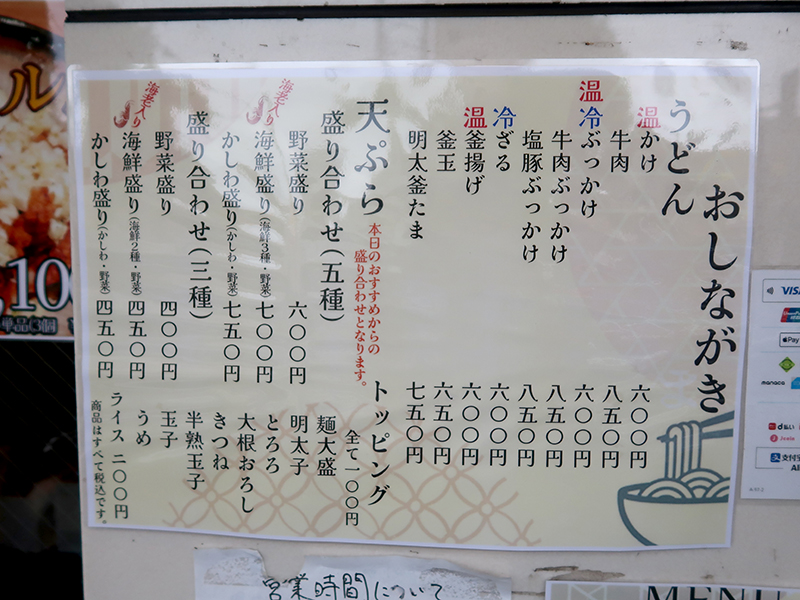 おしながき
うどん
温 かけ 六〇〇円
牛肉 八五〇円
温 冷 ぶっかけ 六〇〇円
牛肉ぶっかけ 八五〇円
塩豚ぶっかけ 八五〇円
冷 ざる 六〇〇円
温 釜揚げ 六〇〇円
釜玉 六五〇円
明太釜たま 七五〇円
天ぷら
本日のおすすめからの
盛り合わせとなります。
盛り合わせ(五種)
野菜盛り 六〇〇円
海老入り 海鮮盛り(海鮮3種・野菜) 七〇〇円
かしわ盛り(かしわ・野菜) 七五〇円
盛り合わせ(三種)
野菜盛り 四〇〇円
海老入り 海鮮盛り(海鮮2種・野菜) 四五〇円
かしわ盛り(かしわ・野菜) 四五〇円
トッピング
全て一〇〇円
麺大盛
明太子
とろろ
大根おろし
きつね
半熟玉子
玉子
うめ
ライス 二〇〇円
商品はすべて税込です。
営業時間について
MENU
VISA
Pay
manaca
d払い
支付宝
ル
10
単品(3個